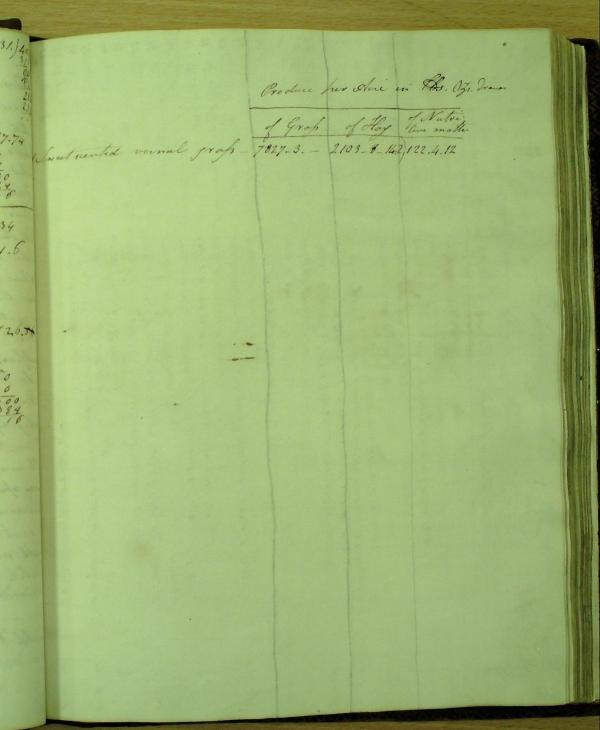 Produce per Acre in lbs. Ozs. Drams
of Grass of Hay of Nutri-
tive matter
Sweet scented vernal grass - 7827-3. - 2103-8- 122.4.12
31.)
34
1.6
0
0
00
84
16